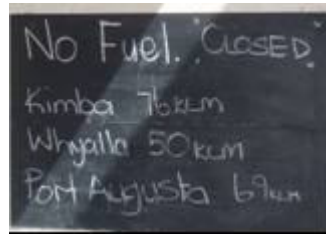 No Fuel. "CLOSED"
Kimba 76KLM
Whyalla 50KLM
Port Augusta 69KLM